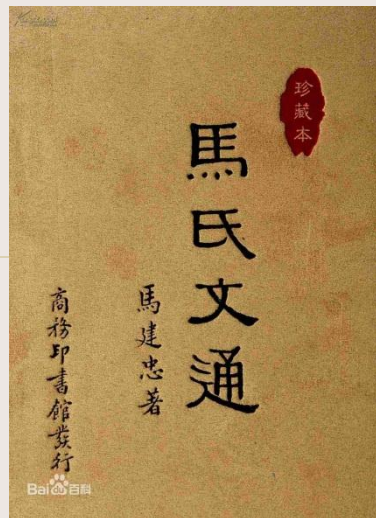 珍藏本
馬氏文通
馬建忠著
商務印書館發行
Bai百科